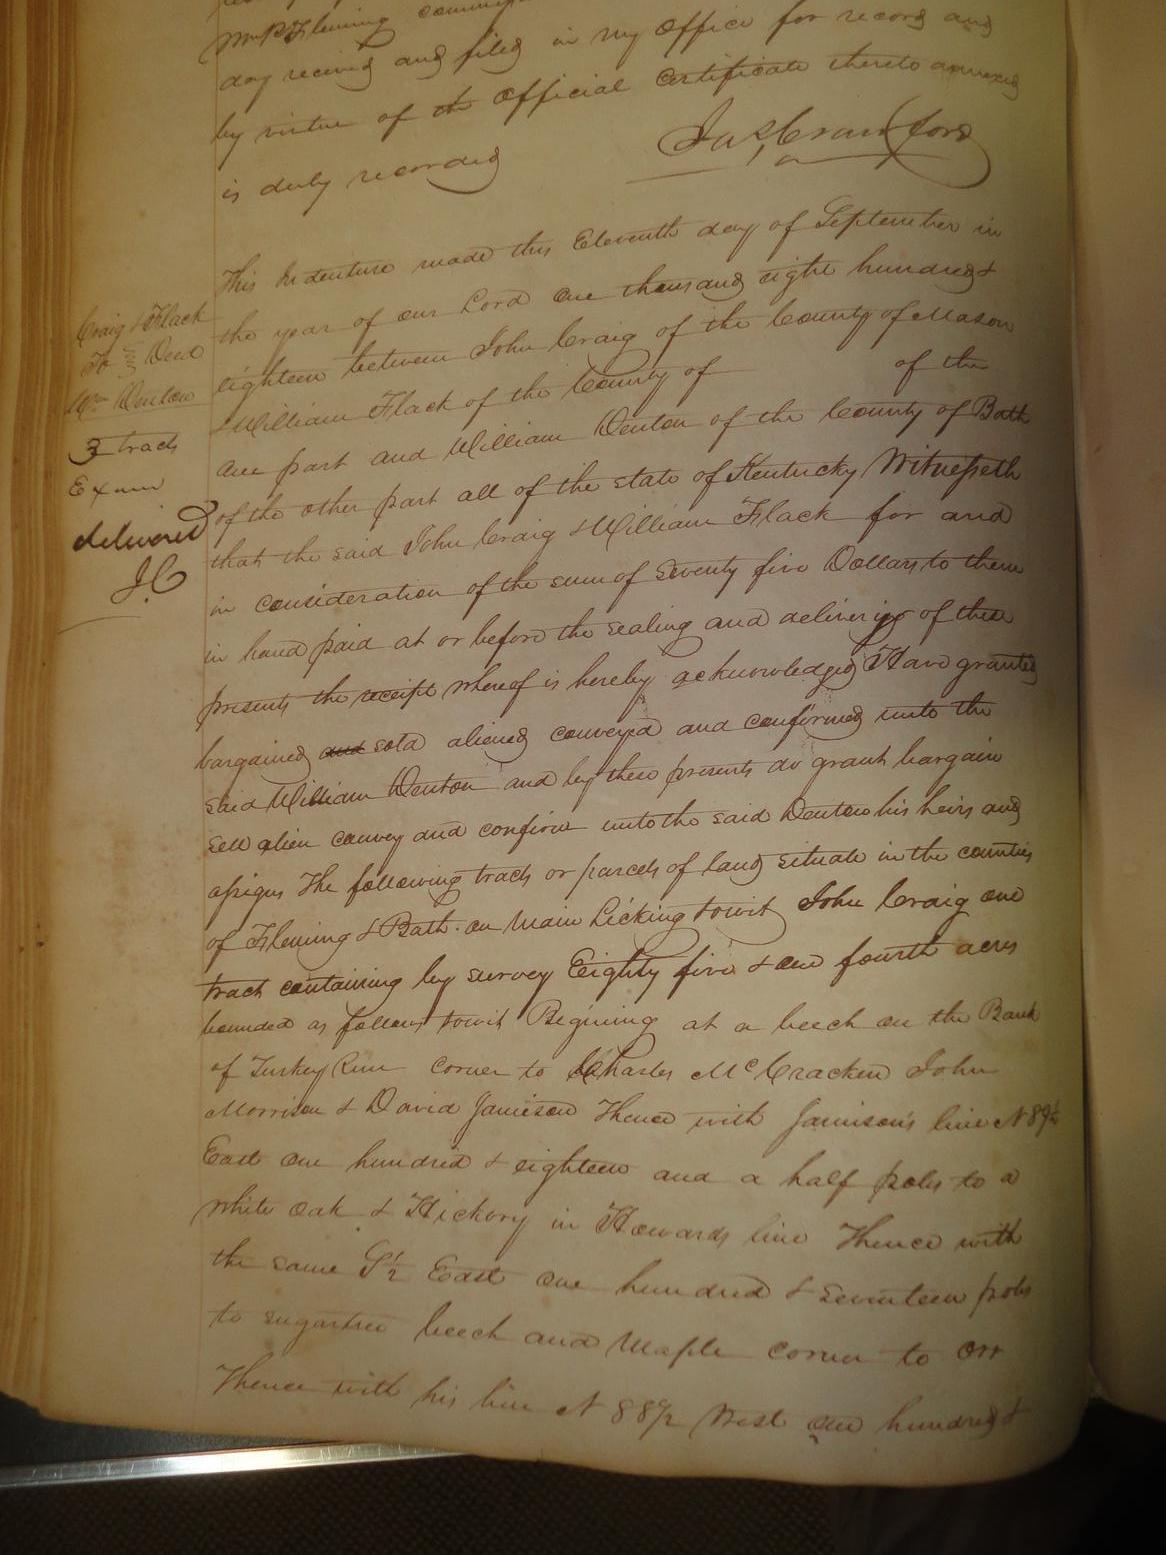 Wm P Fleming
day received and filed in my Office for record and
by virtue of the Official Certificate thereto annexed
is duly recorded
Jas Crawford
This Indenture made this Eleventh day of September in
the year of our Lord one thousand eight hundred &
eighteen between John Craig of the County of Mason
& William Flack of the County of of the
one part and William Denton of the County of Bath
of the other part all of the state of Kentucky Witnesseth
that the said John Craig & William Flack for and
in consideration of the sum of Seventy five Dollars to them
in hand paid at or before the sealing and delivering of these
presents the receipt whereof is hereby acknowledged Have granted
bargained and sold aliened conveyed and confirmed unto the
said William Denton and by these presents do grant bargain
sell alien convey and confirm unto the said Denton his heirs and
assigns the following tracts or parcels of land situate in the counties
of Fleming & Bath on Main Licking towit John Craig one
tract containing by survey Eighty five & one fourth acres
bounded as follows towit Begining at a beech on the Bank
of Turkey Run corner to Charles McCracken John
Morrison & David Jamison Thence with Jamison's line N 89½
East one hundred & eighteen and a half poles to a
white oak & Hickory in Howards line Thence with
the same S½ East one hundred & seventeen poles
to sugartree beech and Maple corner to Orr
Thence with his line N 88½ West one hundred &
Craig & Flack
To Deed
Wm Denton
3 tracts
Exam
delivered
J.C